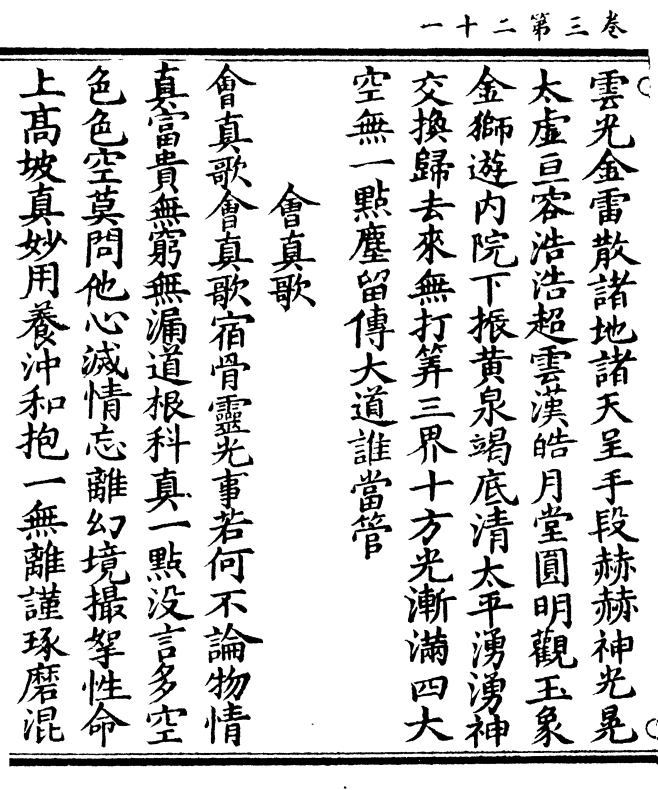 卷三第二十一
雲光金雷散諸地諸天呈手段赫赫神光晃
太虛亘容浩浩超雲漢皓月堂圓明觀玉象
金獅遊内院下振黄泉竭底清太平湧湧神
交換歸去來無打筭三界十方光漸滿四大
空無一點塵留傳大道誰當管
會真歌
會真歌會真歌宿骨靈光事若何不論物情
真富貴無窮無漏道根科真一點没言多空
色色空莫問他心滅情忘離幻境撮拏性命
上髙坡真妙用養沖和抱一無離謹琢磨混